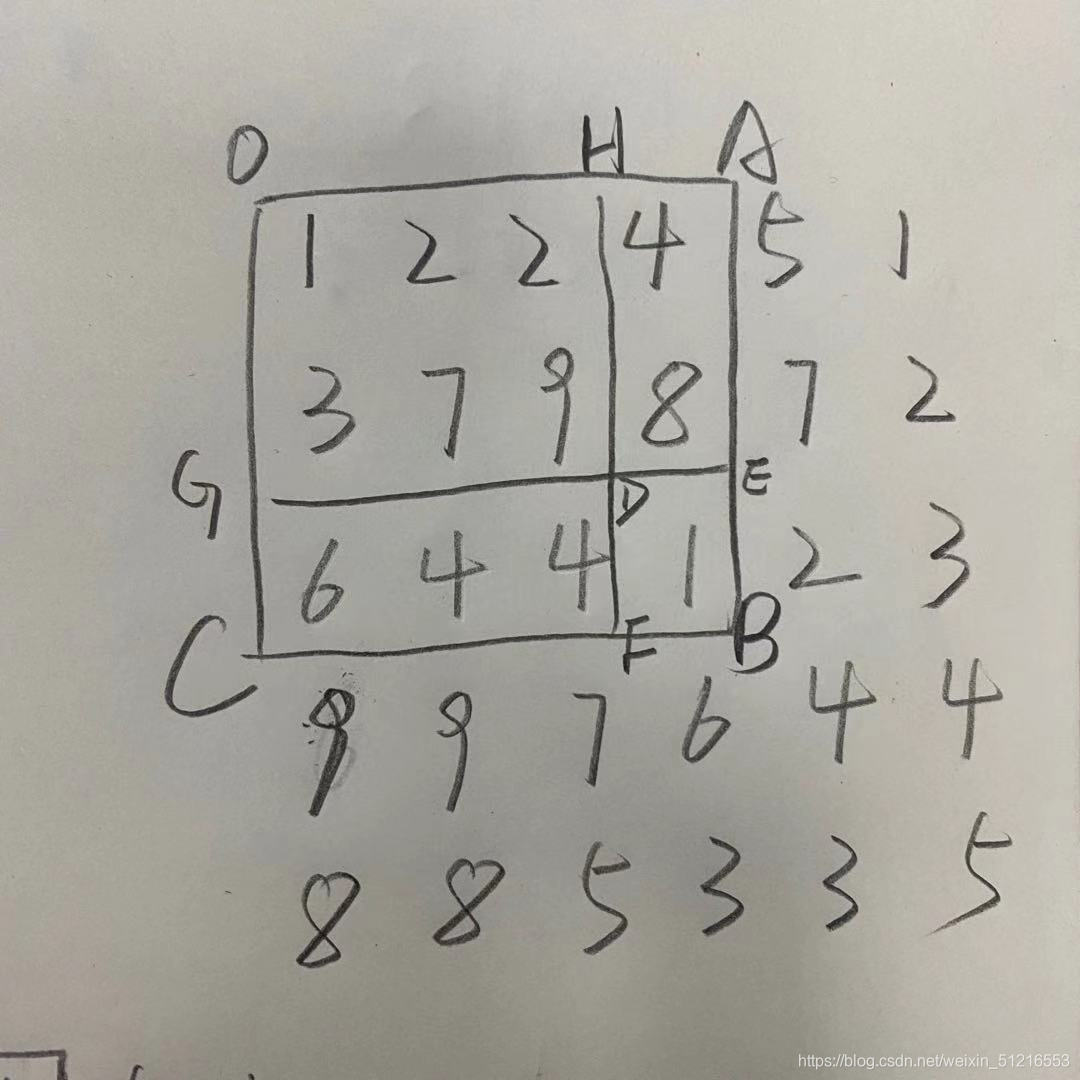 O H A
1 2 2 4 5 1
3 7 9 8 7 2
G D E
6 4 4 1 2 3
C F B
9 9 7 6 4 4
8 8 5 3 3 5
https://blog.csdn.net/weixin_51216553